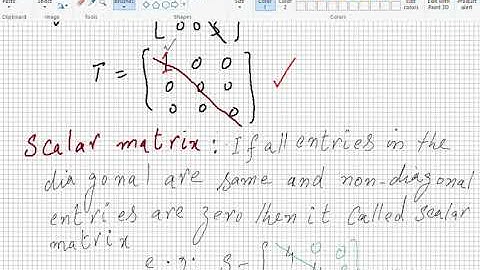 Parts
Brushes
Size
Color 1
Color 2
Edit colors
Edit with Paint 3D
Product alert
Clipboard
Image
Shapes
Colors
[ 0 0 5 ]
T = [ 1 0 0
0 0 0
0 0 0 ] ✓
Scalar matrix: If all entries in the
diagonal are same and non-diagonal
entries are zero then it called scalar
matrix
e.g: S = [ 4 0 0